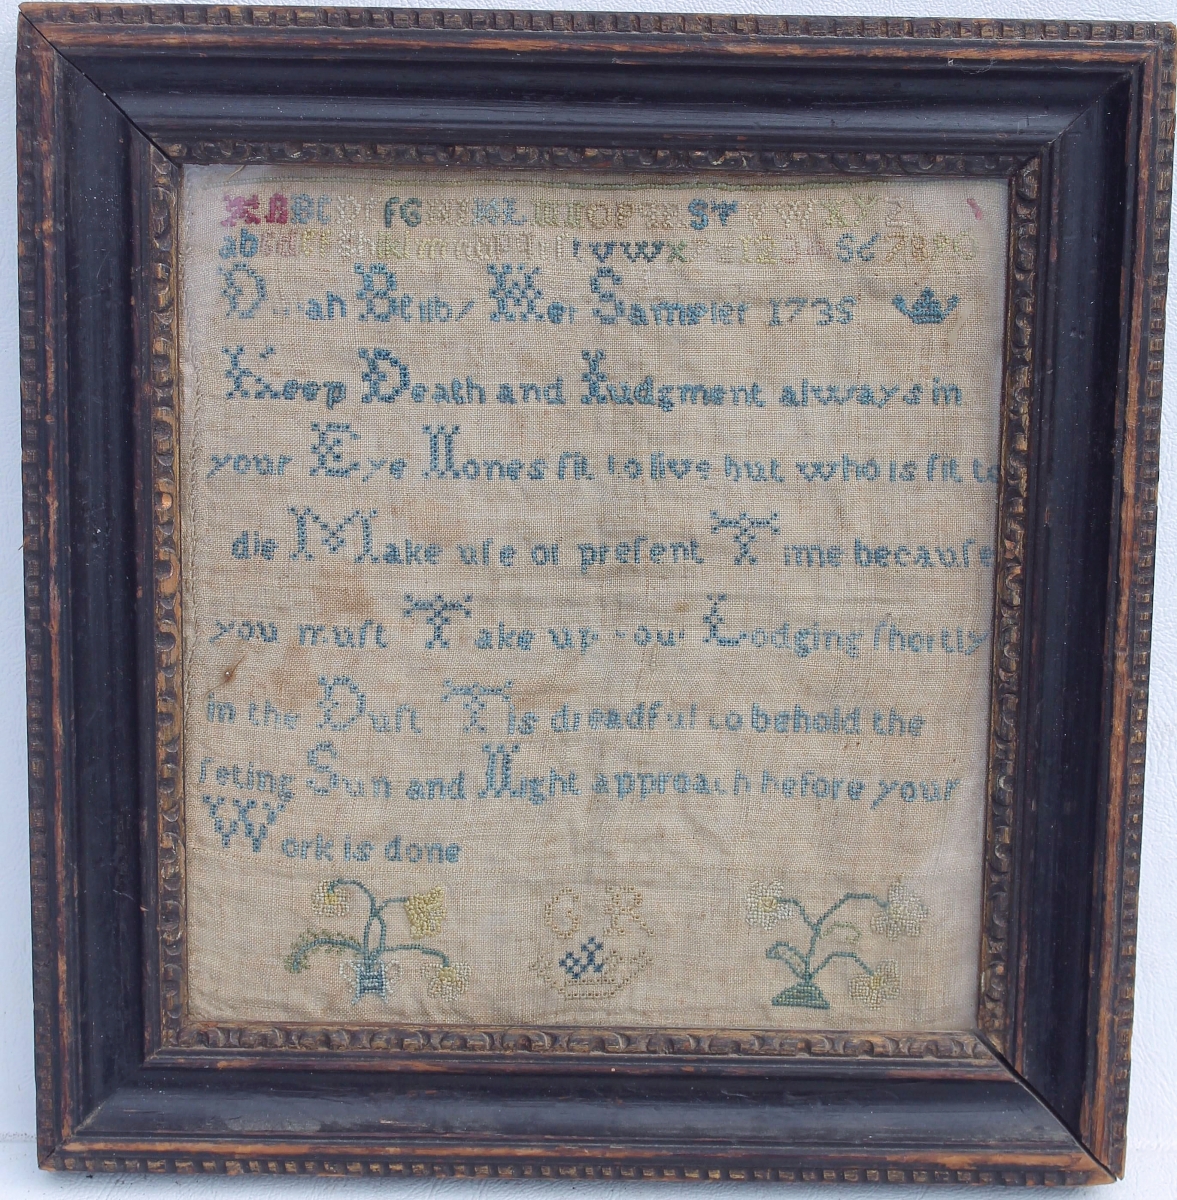 A B C D E F G H I K L M N O P Q R S T V W X Y Z
a b c d e f f g h i k l m n o p q r s ſ t v w x y z 1 2 3 4 5 6 7 8 9 10
Her Sampler 1735
Keep Death and Iudgment always in
your Eye Nones fit to live but who is fit to
die Make uſe of preſent Time becauſe
you muſt Take up your Lodging ſhortly
in the Duſt Tis dreadful to behold the
ſeting Sun and Night approach before your
Work is done
G R